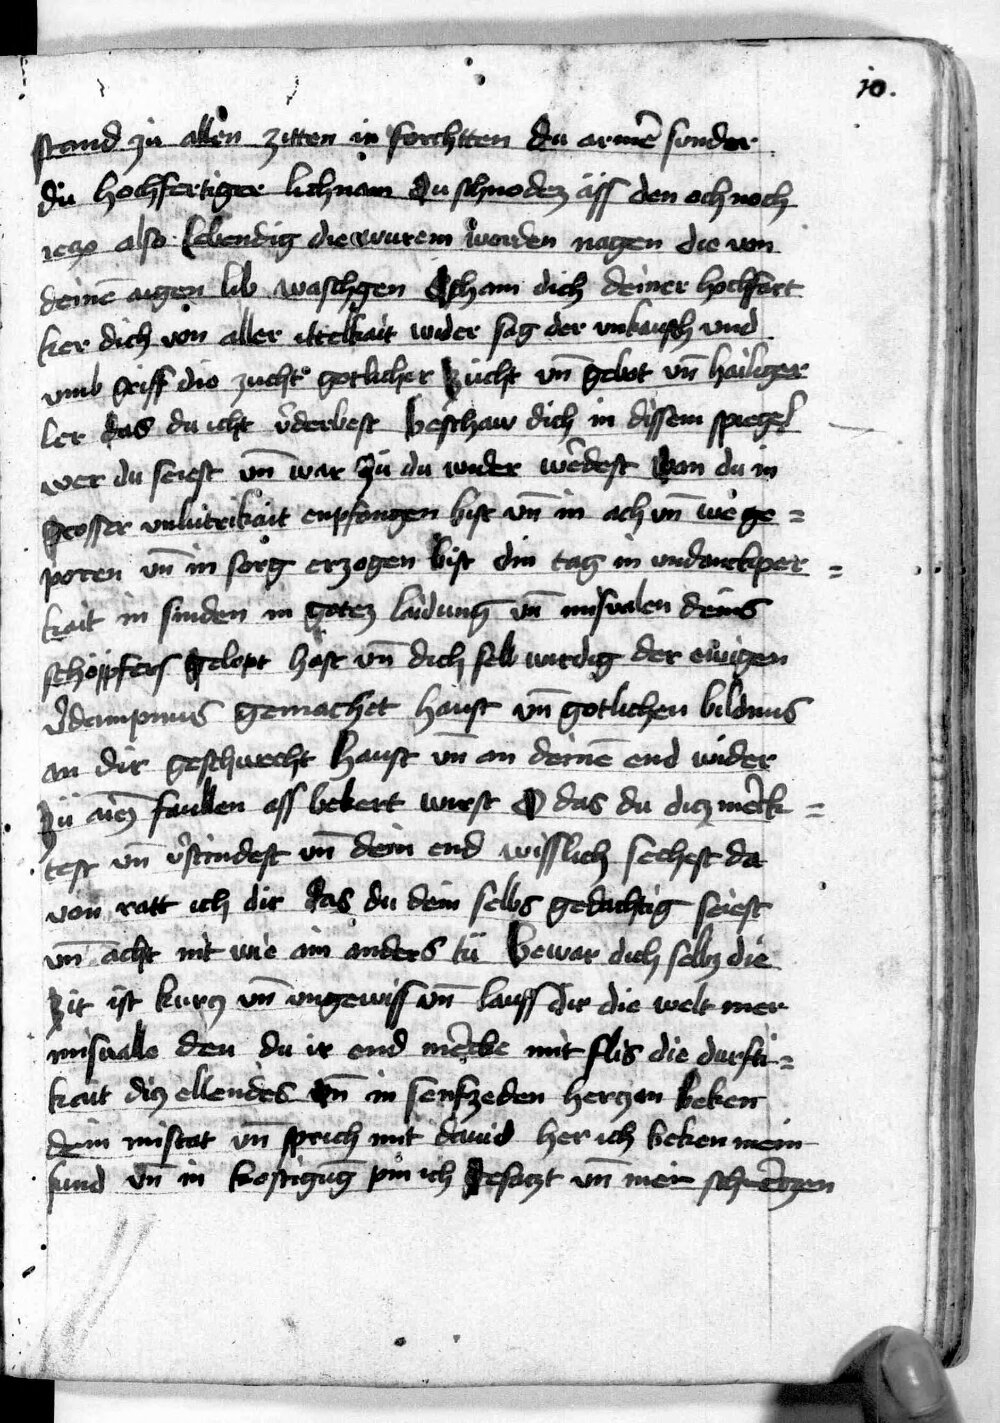 10.
stand zu allen zitten in forchtten du armē sunder
du hochfertiger lichnam du schnodez äss den och noch
also lebendig die wurem werden nagen die von
deinē aigen lib waschgen Scham dich deiner hochfart
ker dich von aller ittelkait wider sag der unkausch und
umb griff die zucht gotlicher zücht vn̄ gebot vn̄ hailiger
ler das du icht v̄derbest beschaw dich in dissem spiegel
wer du seiest vn̄ war zü du wider werdest wan du in
grosser unlutrikait enpfangen bist vn̄ in ach vn̄ we ge =
poren vn̄ in sorg erzogen bist din tag in undanckper =
kait in sunden in gotez laidung vn̄ misvalen deins
schöpfers gelept hast vn̄ dich selb wirdig der ewigen
v̄dampnus gemachet haust vn̄ gotlichen bildnus
an dir geschwecht haust vn̄ an deinē end wider
zü faullen ass bekert wirst O das du diz merk =
test vn̄ v̄stindest vn̄ dein end wisslich sechest da
von ratt ich dir das du dein selbs gedächtig seiest
vn̄ acht nit wie ain anders tü bewar dich selbz die
zit ist kurcz vn̄ ungewiss vn̄ lauss dir die welt mer
misvalle den du ir end mercke mit flis die durfti =
kait diz ellendes vn̄ in senfzeden herczen beken
dein mistat vn̄ sprich mit david her ich beken mein
sund vn̄ in kestigūg pin ich gesatzt vn̄ mein schmerzen